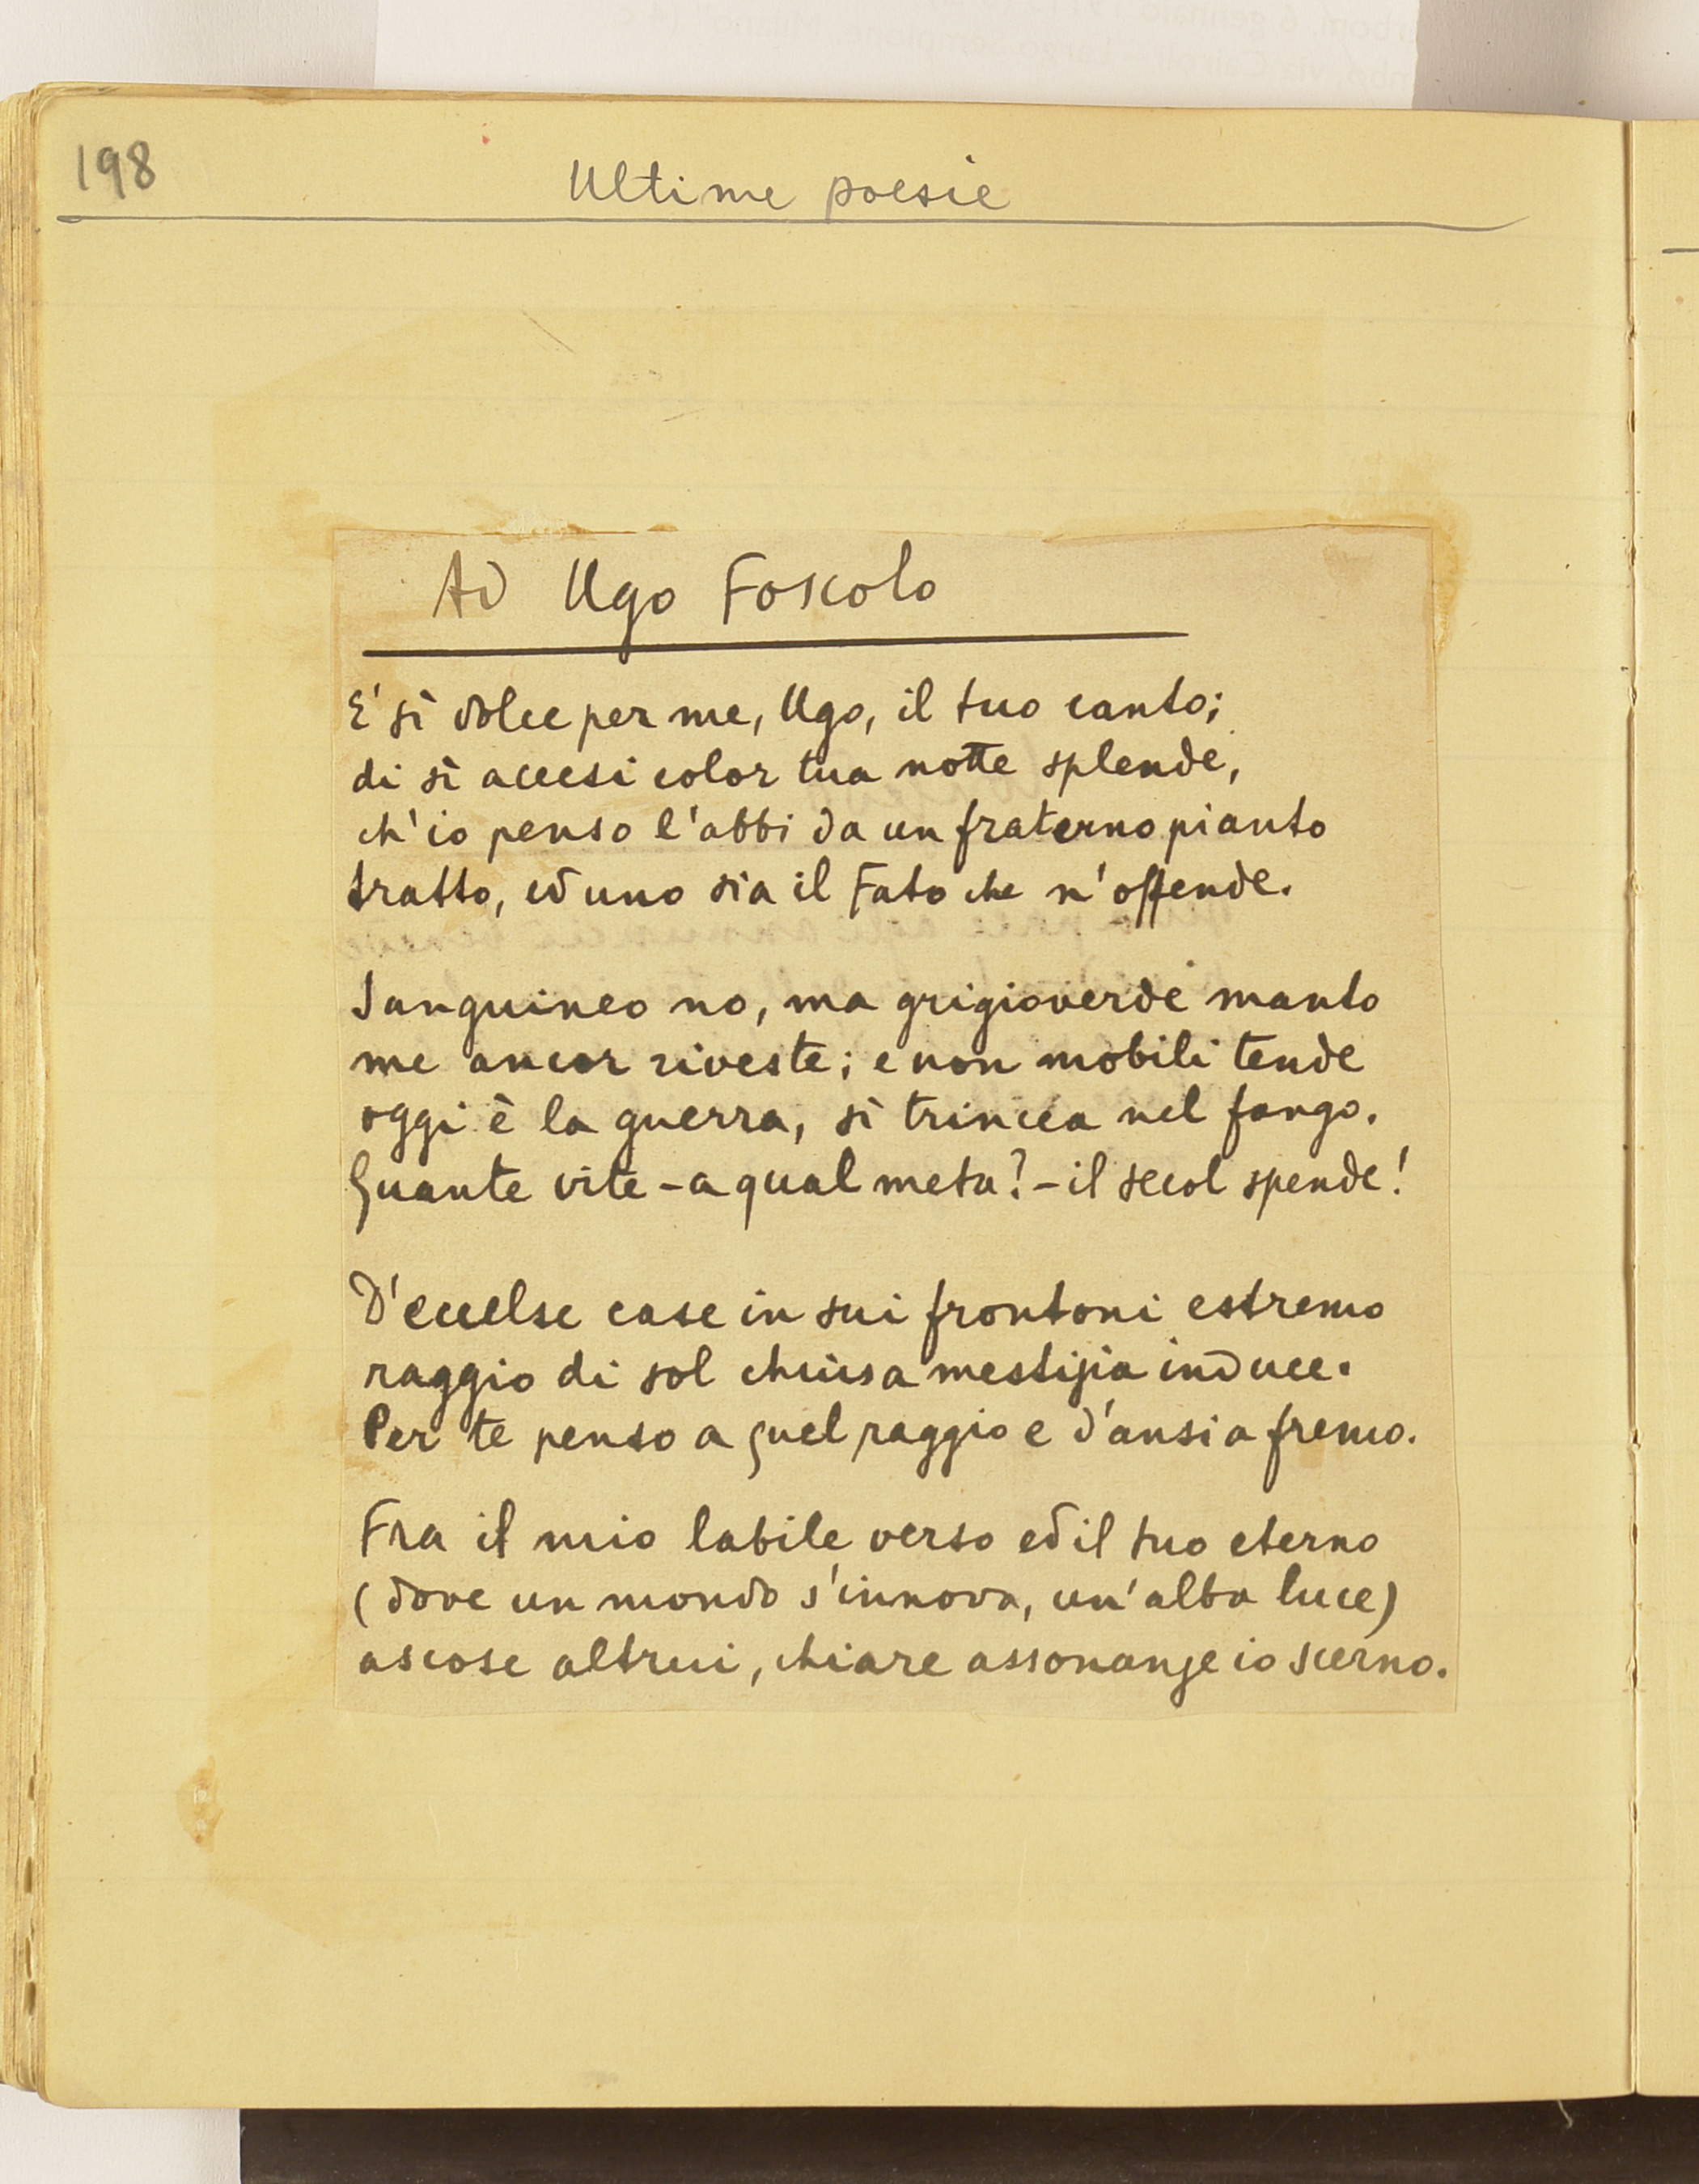 198
Ultime poesie
Ad Ugo Foscolo
E' sì dolce per me, Ugo, il tuo canto;
di sì accesi color tua notte splende,
ch'io penso l'abbi da un fraterno pianto
tratto, ed uno sia il Fato che n'offende.
Sanguineo no, ma grigioverde manto
me ancor riveste; e non mobili tende
oggi è la guerra, sì trincea nel fango.
Quante vite - a qual meta? - il secol spende!
D'eccelse case in sui frontoni estremo
raggio di sol chiusa mestizia induce.
Per te penso a quel raggio e d'ansia fremo.
Fra il mio labile verso ed il tuo eterno
(dove un mondo s'innova, un'alba luce)
ascose altrui, chiare assonanze io scerno.